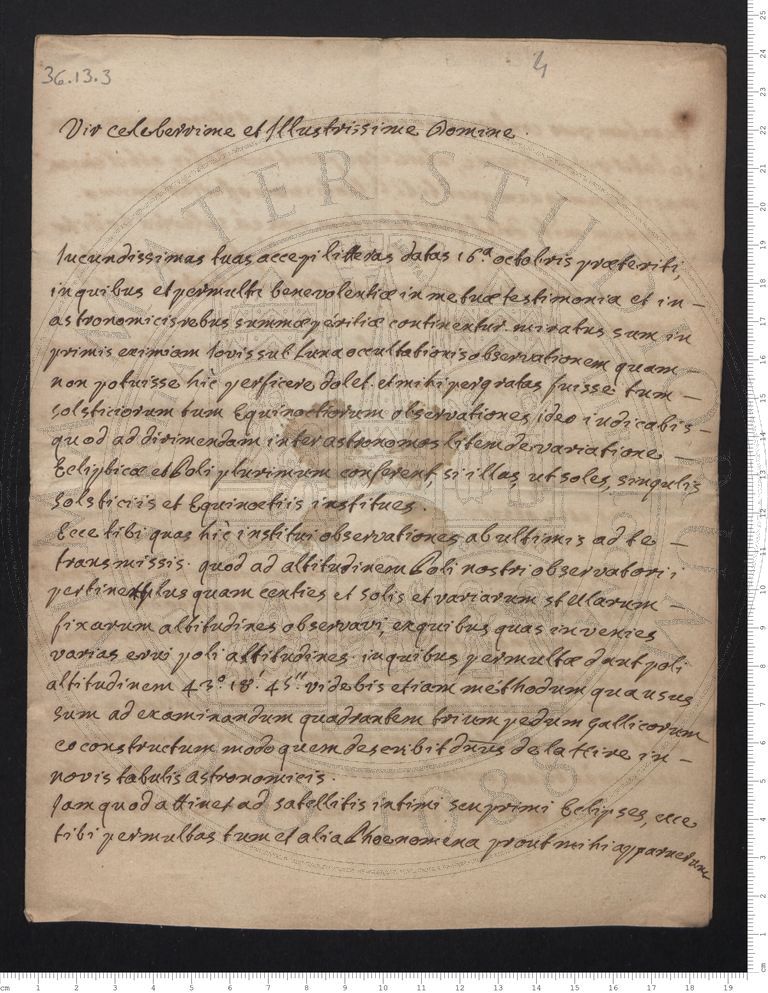 36.13.3
4
Vir celeberrime et Illustrissime Domine.
Iucundissimas tuas accepi litteras datas 16.a octobris præteriti,
in quibus et permulta benevolentiæ in me tuæ testimonia et in –
astronomicis rebus summæ peritiæ continentur. miratus sum in
primis eximiam Iovis sub Luna occultationis observationem quam –
non potuisse hìc perficere dolet. et mihi pergratas fuisse tum –
solsticiorum tum Equinoctiorum observationes ideo iudicabis –
quod ad dirimendam inter astronomos litem de variatione –
Eclipticæ et Poli plurimum conferent, si illas, ut soles, singulis
solsticiis et Equinoctiis institues.
Ecce tibi quas hìc institui observationes ab ultimis ad te –
transmissis. quod ad altitudinem Poli nostri observatorii
pertinet plus quam centies et solis et variarum stellarum –
fixarum altitudines observavi, ex quibus quas invenies
varias erui poli altitudines. in quibus permultæ dant poli
altitudinem 43.° 18.' 45." videbis etiam méthodum qua usus
sum ad examinandum quadrantem trium pedum gallicorum
eo constructum modo quem describit dnus de la Hire in –
novis tabulis astronomicis.
Iam quod attinet ad satellitis intimi seu primi Eclipses, ecce
tibi permultas tum et alia Phoenomena prout mihi apparuerunt